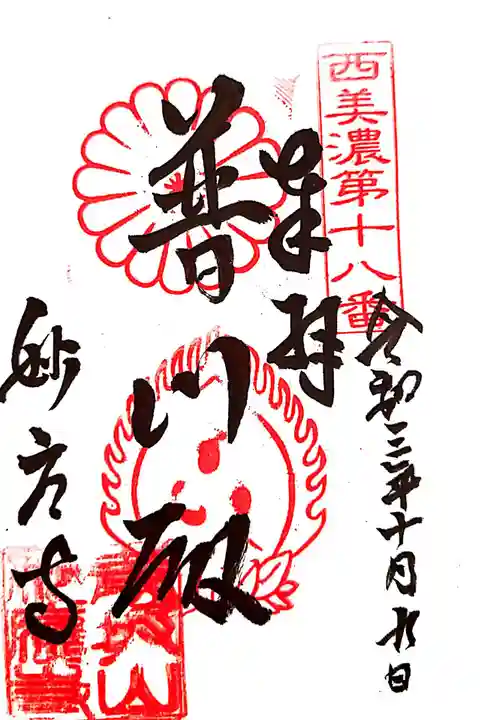 西美濃第十八番
令和三年十月九日
奉拝
普門殿
妙応寺